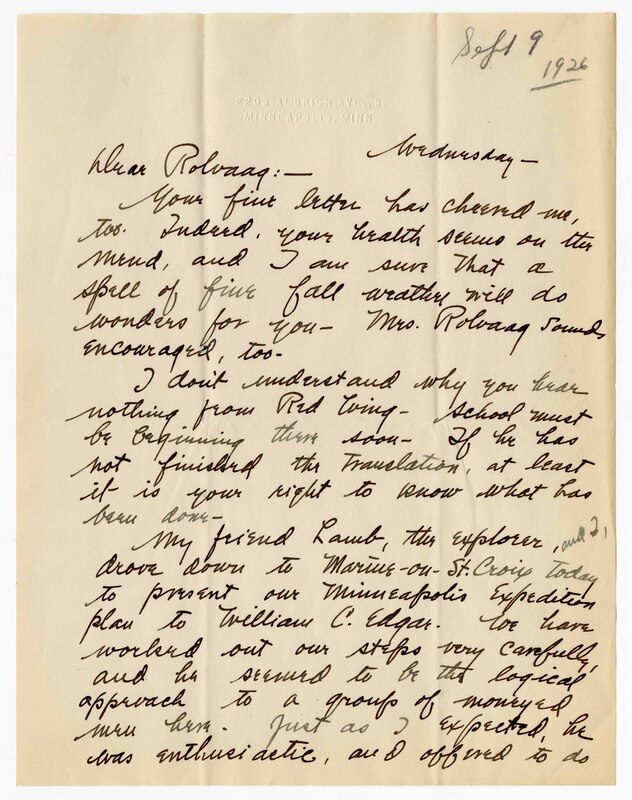 Sept 9
1926
2203 ALDRICH AVE., S.
MINNEAPOLIS, MINN.
Wednesday—
Dear Rolvaag:—
Your fine letter has cheered me,
too. Indeed, your health seems on the
mend, and I am sure that a
spell of fine fall weather will do
wonders for you— Mrs. Rolvaag sounds
encouraged, too-
I don't understand why you hear
nothing from Red Wing— School must
be beginning there soon— If he has
not finished the translation, at least
it is your right to know what has
been done—
My friend Lamb, the explorer, and I,
drove down to Marine-on-St. Croix today
to present our Minneapolis Expedition
plan to William C. Edgar. We have
worked out our steps very carefully,
and he seemed to be the logical
approach to a group of moneyed
men here. Just as I expected, he
was enthusiastic, and offered to do